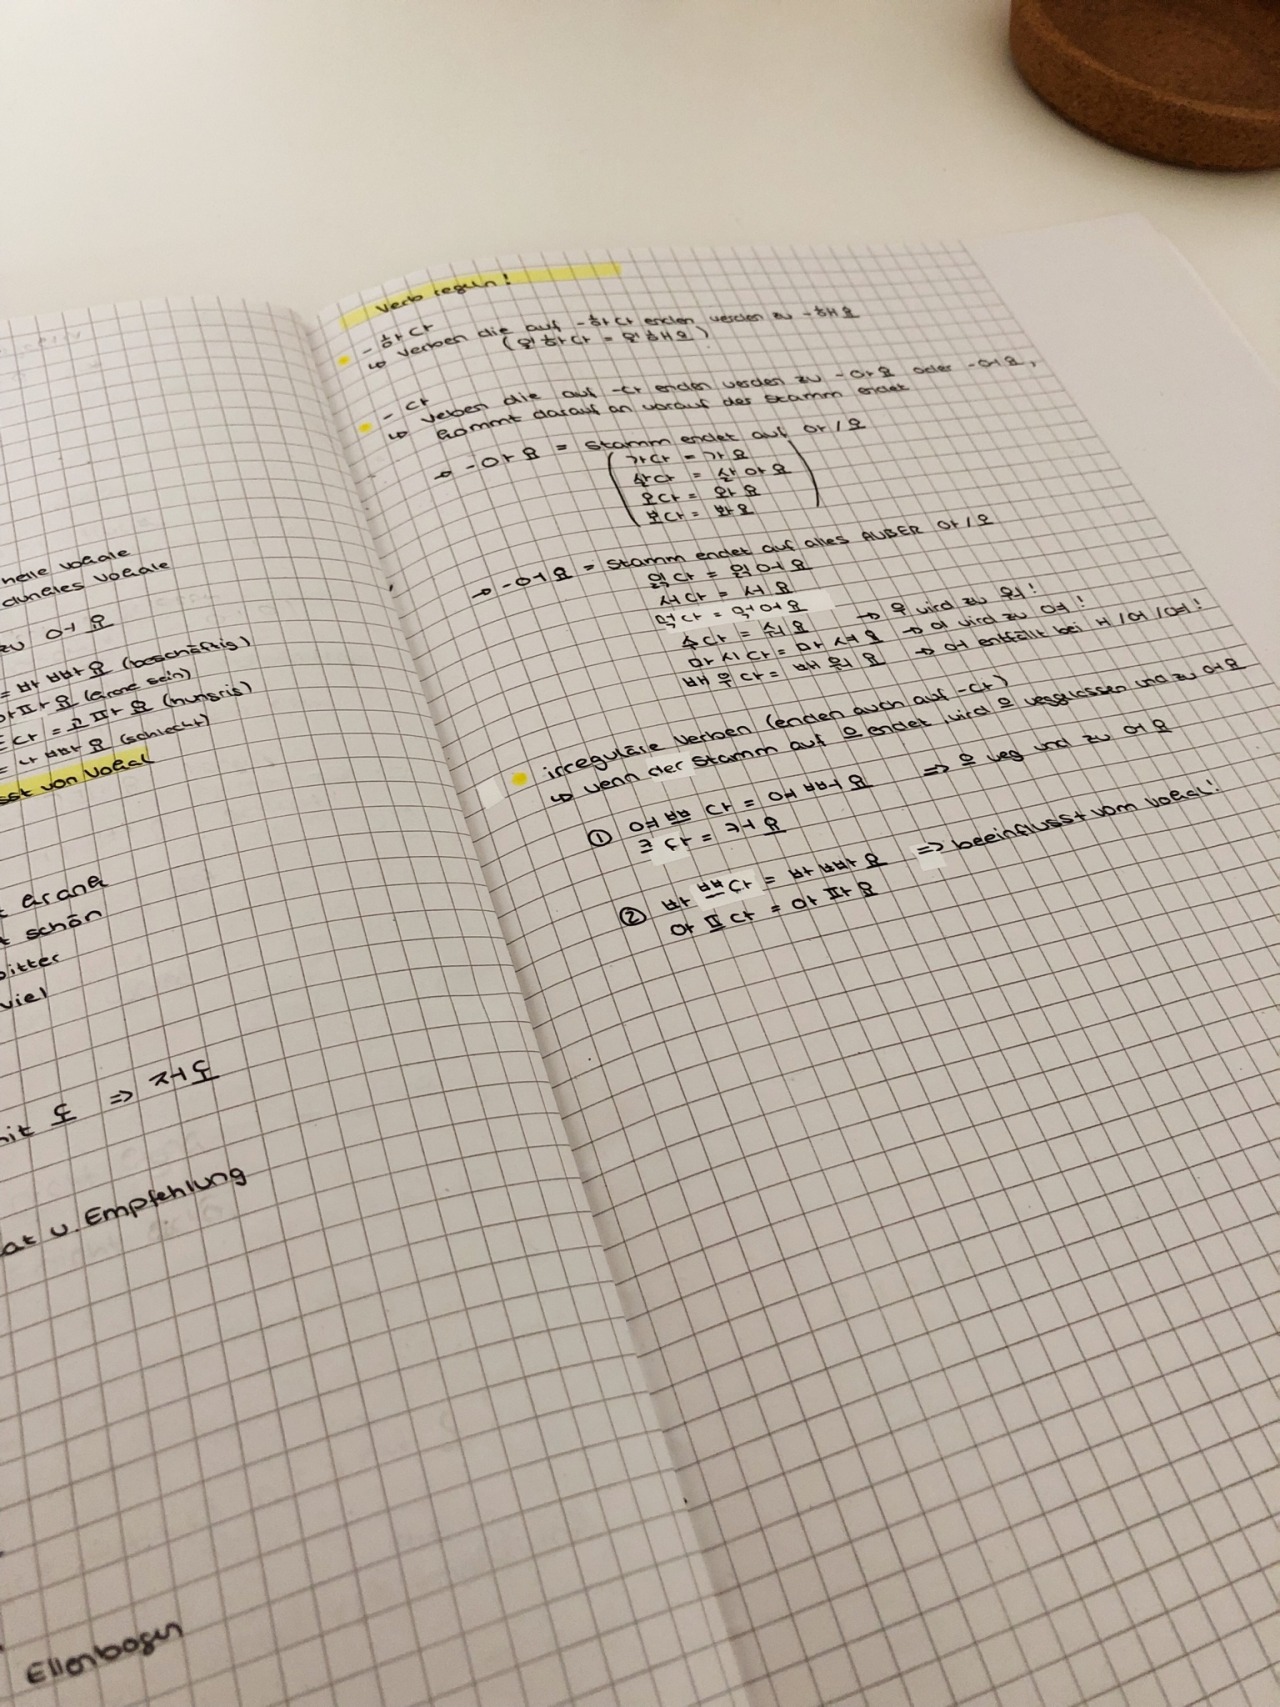 helle Vokale
dunkles Vokale
zu 어요
= 바빠요 (beschäftig)
아파요 (krank sein)
다 = 고파요 (hungrig)
= 나빠요 (schlecht)
sst von Vokal
krank
schön
bitter
viel
mit 도 => 저도
at u. Empfehlung
Ellenbogen
Verb regeln!
- 하다
↳ Verben die auf -하다 enden werden zu -해요
(원하다 = 원해요)
- 다
↳ Veben die auf -다 enden werden zu -아요 oder -어요,
kommt darauf an worauf der Stamm endet
→ -아요 = Stamm endet auf 아/오
가다 = 가요
살다 = 살아요
오다 = 와요
보다 = 봐요
→ -어요 = Stamm endet auf alles AUßER 아/오
읽다 = 읽어요
서다 = 서요
먹다 = 먹어요
주다 = 줘요 → 우 wird zu 워!
마시다 = 마셔요 → 이 wird zu 여!
배우다 = 배워요 → 어 entfällt bei ㅐ/어/여!
irreguläre Verben (enden auch auf -다)
↳ wenn der Stamm auf 으 endet wird 으 weggelassen und zu 어요
① 예쁘다 = 예뻐요 => 으 weg und zu 어요
크다 = 커요
② 바쁘다 = 바빠요 => beeinflusst vom Vokal!
아프다 = 아파요